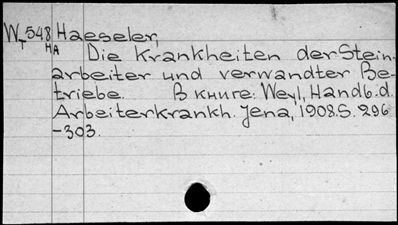 W 548 Haeseler,
T HA
Die Krankheiten der Stein-
arbeiter und verwandter Be-
triebe. В книге: Weyl, Handb. d.
Arbeiterkrankh. Jena, 1908. S. 296
-303.